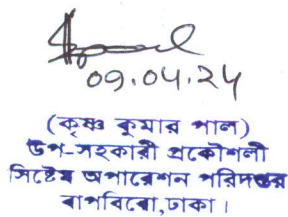 09.04.24
(কৃষ্ণ কুমার পাল)
উপ-সহকারী প্রকৌশলী
সিষ্টেম অপারেশন পরিদপ্তর
বাপবিবো,ঢাকা।